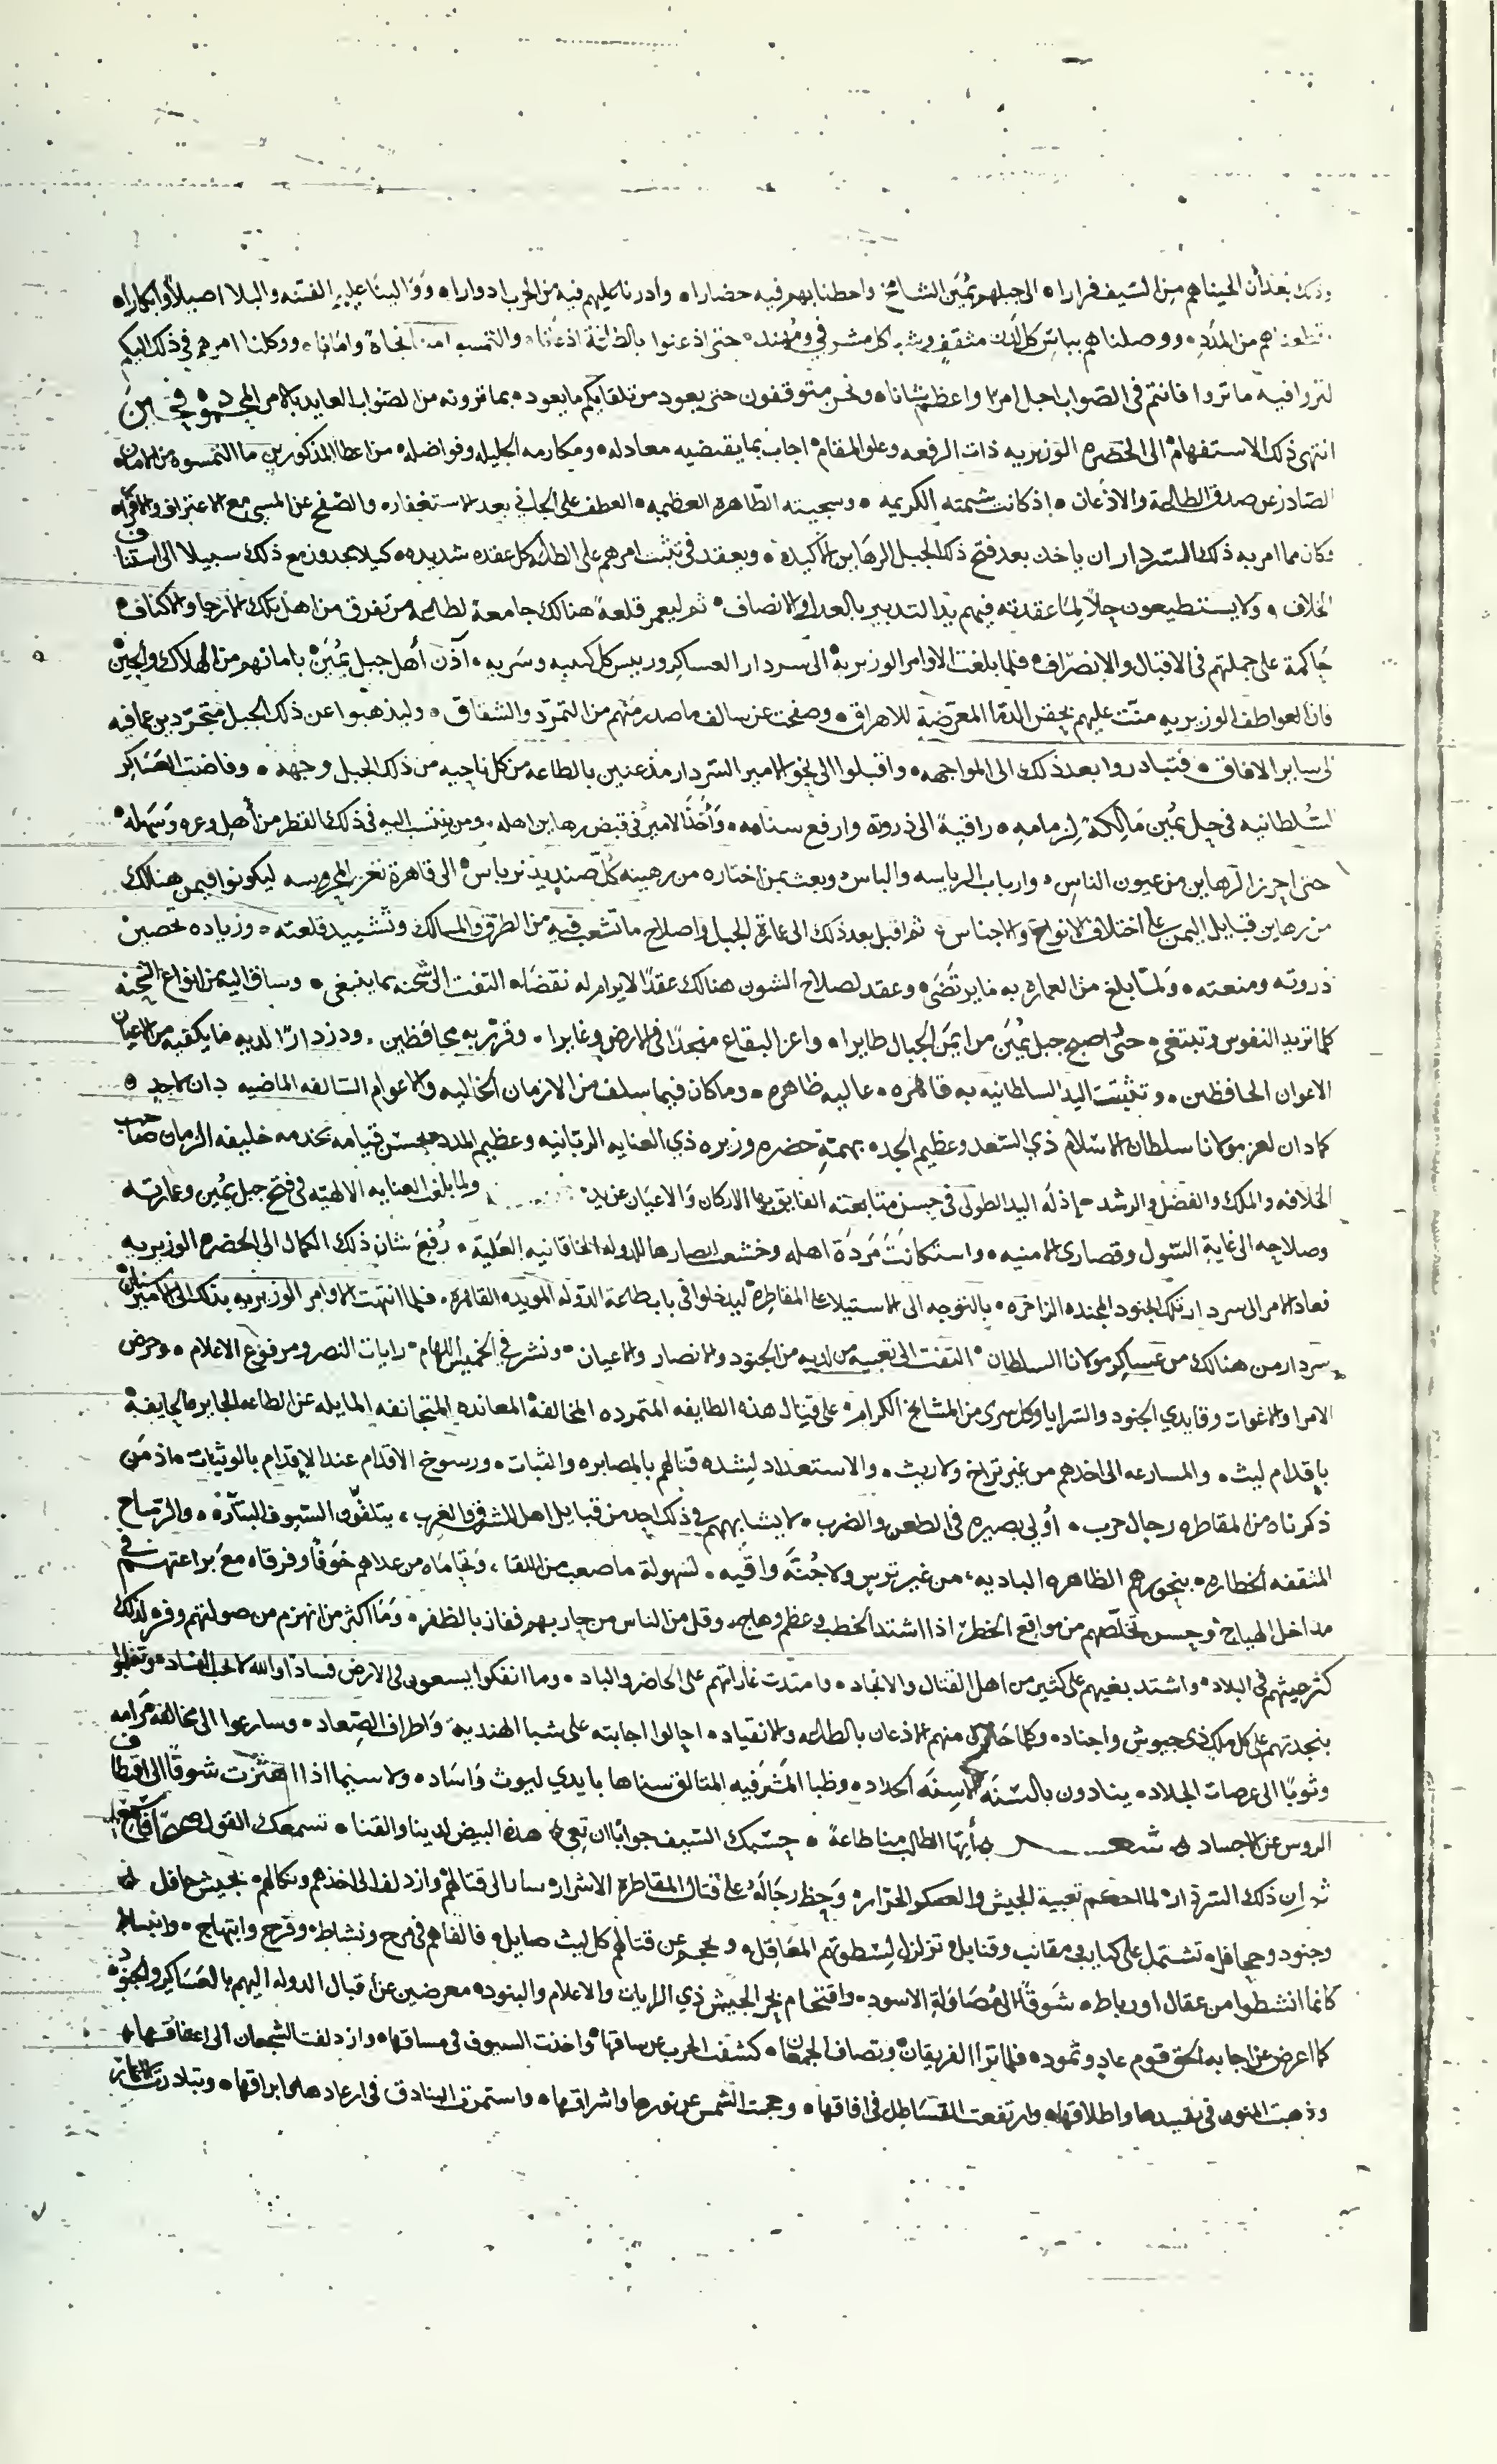 وذلك بعد أن الجيناهم من السيف فرارا ه الى جبلهم يُمَين الشامخ واحطنا بهم فيه حضارا ه وأدرنا عليهم فيه من الحرب ادوارا ه ووالينا عليهم الفتنه والبلا اصيلاً وابكارا ه
قطعناهم من المدد ه ووصلناهم بباس كل لدن مثقف وشبا كل مشرفي ومهند ه حتى اذعنوا بالطاعة اذعانا ه والتمسوا منا نجاة وامانا ه ووكلنا امرهم في ذلك اليكم
لتروا فيه ما تروا فانتم في الصواب اجل امرا واعظم شانا ه ونحن متوقفون حتى يعود من تلقايكم ما يعود ه بما ترونه من الصواب العايد بالامر المحمود ه فحين
انتهى ذلك الاستفهام الى الحضره الوزيريه ذات الرفعه وعلو المقام ه اجاب بما يقتضيه معادله ه ومكارمه الجليله وفواضله ه من اعطا المذكورين ما التمسوه من الامان
الصادر عن صدق الطاعة والاذعان ه اذ كانت شيمته الكريمه ه وسجيته الطاهرة العظيمه ه العطف على الجاني بعد الاستغفار ه والصفح عن المسي مع الاعتراف والاقرار ه
فكان مما امر به ذلك السردار ان ياخذ بعد فتح ذلك الجبل الرهاين الاكيدة ه ويعقد في تثبت امرهم على الطاعة كل عقده شديده ه كيلا يجدوا مع ذلك سبيلا الى استيناف
الخلاف ه ولا يستطيعون حلاً لما عقدته فيهم يد التدبير بالعدل والانصاف ه ثم ليعمر قلعة هنالك جامعة لطاعة من تفرق من اهل تلك الارجا والاكناف ه
حاكمة على جملتهم في الاقبال والانصراف ه فلما بلغت الاوامر الوزيرية الى سردار العساكر ورييس كل كتيبه وسريه ه آذن أهل جبل يُمَين بامانهم من الهلاك والحين ه
فان العواطف الوزيريه منّت عليهم بحقن الدما المعرّضة للاهراق ه وصفحت عن سالف ما صدر منهم من التمرد والشقاق ه وليذهبوا عن ذلك الجبل متجردين عما فيه
الى ساير الافاق ه فتبادروا بعد ذلك الى المواجهه ه واقبلوا الى نحو الامير السردار مذعنين بالطاعه من كل ناحيه من ذلك الجبل وجهة ه وفاضت العساكر
السلطانيه في جبل يُمين مَالِكة لزمامه ه راقية الى ذروة وارفع سنامه ه وأخذ الامير في قبض رهاين اهله ه ومن ينتسب اليه في ذلك القطر من أهل وعره وسهله ه
حتى احرز الرهاين من عيون الناس ه وارباب الرياسه والباس ه وبعث بمن اختاره من رهينه كل صنديد ترياس ه الى قاهرة تعز المحروسه ليكونوا فيمن هنالك
من رهاين قبايل اليمن على اختلاف الانواع والاجناس ه ثم اقبل بعد ذلك الى عمارة الجبل واصلاح ما تشعب فيه من الطرق والمسالك وتشييد قلعته ه وزياده تحصين
ذروته ومنعته ه ولمّا بلغ من العماره به ما يرتضى ه وعقد لصلاح الشون هنالك عقدًا لا يرام له نقضا ه التفت الى شحنه بما ينبغي ه وساق اليه من انواع الشحنه
كلما تريد النفوس وتبتغي ه حتى اصبح جبل يُمَين من ايمن الجبال طايرا ه واعز البقاع منجدًا في الارض وغايرا ه وقرر به محافظين ه ودزدارًا لديه ما يكفيه من اعيان
الاعوان الحافظين ه وتثبتت اليد السلطانيه به قاهره ه عاليه ظاهره ه وما كان فيما سلف من الازمان الخاليه والاعوام السالفه الماضيه دان لاحد ه
كما دان لعز مولانا سلطان الاسلام ذي السعد وعظيم الجد ه بهمة حضره وزيره ذي العنايه الربانيه وعظيم المدد ه بحسن قيامه بخدمه خليفه الزمان صاحب
الخلافه والملك والفضل والرشد ه اذ له اليد الطولى في حسن متابعته الفايق بها الاركان والاعيان عن يد ه ولما بلغت العنايه الالهيه في فتح جبل يُمين وعمارته
وصلاحه الى غاية السول وقصارى الامنيه ه واستكانت مَرَدَة اهله وخشعت ابصارها للدوله الخاقانيه العلية ه رُفِعَ شان ذلك الكمال الى الحضره الوزيريه
فعاد الامر الى سردار تلك الجنود المجنده الزاخره ه بالتوجه الى الاستيلا على المقاطرة ليدخلوا في باب طاعة الدوله المويده القاهره ه فلما انتهت الاوامر الوزيريه بذلك الى الامير سنان
سردار من هنالك من عساكر مولانا السلطان ه التفت الى تعبية من لديه من الجنود والانصار والاعيان ه ونشر في الخميس اللهام ه رايات النصر ومرفوع الاعلام ه وحرض
الامرا والاغوات وقايدي الجنود والسرايا وكل سري من المشايخ الكرام ه على قتال هذه الطايفه المتمرده المخالفة المعانده المتجانفه المايله عن الطاعه الجايره الحايفة
باقدام ليث ه والمسارعه الى اخذهم من غير تراخ ولا ريث ه والاستعداد لشده قتالهم بالمصابره والثبات ه ورسوخ الاقدام عند الاقدام بالوثبات ه اذ من
ذكرناه من المقاطره رجال حرب ه أولي بصيره في الطعن والضرب ه لا يشابههم في ذلك احد من قبايل اهل الشرق والغرب ه يتلقون السيوف البتارة ه والرماح
المثقفه الخطاره ه بنحورهم الظاهره الباديه ه من غير ترس ولا جُنَّة واقيه ه لسهولة ما صعب من اللقا ه وتحاماه من عداهم خوفًا وفرقا ه مع براعتهم في
مداخل الهياج ه وحسن تخلصهم من مواقع الخطر ه اذا اشتد الخطب وعظم وهاج ه وقل من الناس من حاربهم ففاز بالظفر ه وما اكثر من انهزم من صولتهم وفر ه لذلك
كثر عيثهم في البلاد ه واشتد بغيهم على كثير من اهل القتال والانجاد ه وامتدت غاراتهم على الحاضر والباد ه وما انفكوا يسعون في الارض فسادًا والله لا يحب الفساد ه وتغلبوا
بنجدتهم على كل ملك ذي جيوش واجناد ه وكلما حاول منهم الاذعان بالطاعه والانقياد ه احالوا اجابته على شبا الهندية واطراف الصعاد ه وسارعوا الى مخالفة مرامه
وثوبًا الى عرصات الجلاد ه ينادون بالسنة الاسنه الحداد ه وظبا المشرفيه المتالق سناها بايدي ليوث واساد ه ولا سيما اذا اهتزت شوقًا الى اقتطاف
الروس عن الاجساد ه شعر ه أيها الطالب منا طاعة ه حسبك السيف جوابًا ان تعي ه هذه البيض لدينا والقنا ه تسمعك القول
ثم ان ذلك السردار ه لما احكم تعبية الجيش والعسكر الجرار ه وحظ رجاله على قتال المقاطرة الاشرار ه سار الى قتالهم ه وازدلف الى اخذهم ونكالهم ه بجيش حافل ه
وجنود وجحافل ه تشتمل على كتايب مقانب وقنابل ه تزلزل لسطوتهم المعاقل ه ويحجم عن قتالهم كل ليث صايل ه فالفاهم في مرح ونشاط ه وفرح وابتهاج ه وانبساط
كانما انشطوا من عقال او رباط ه شوقًا الى مُصَاولة الاسود ه واقتحام بحر الجيش ذي الرايات والاعلام والبنود ه معرضين عن اقبال الدوله اليهم بالعساكر والجنود ه
كما اعرض عن اجابه الحق قوم عاد وثمود ه فلما ترآا الفريقان ه وتصاف الجمعان ه كشفت الحرب عن ساقها ه واخذت السيوف في مساقها ه وازدلفت الشجعان الى اعناقها ه
وذهبت المنون في تقييدها واطلاقها ه وارتفعت القساطل في افاقها ه وحجبت الشمس عن نورها واشراقها ه واستمرت البنادق في ارعادها وابراقها ه وتبادرت